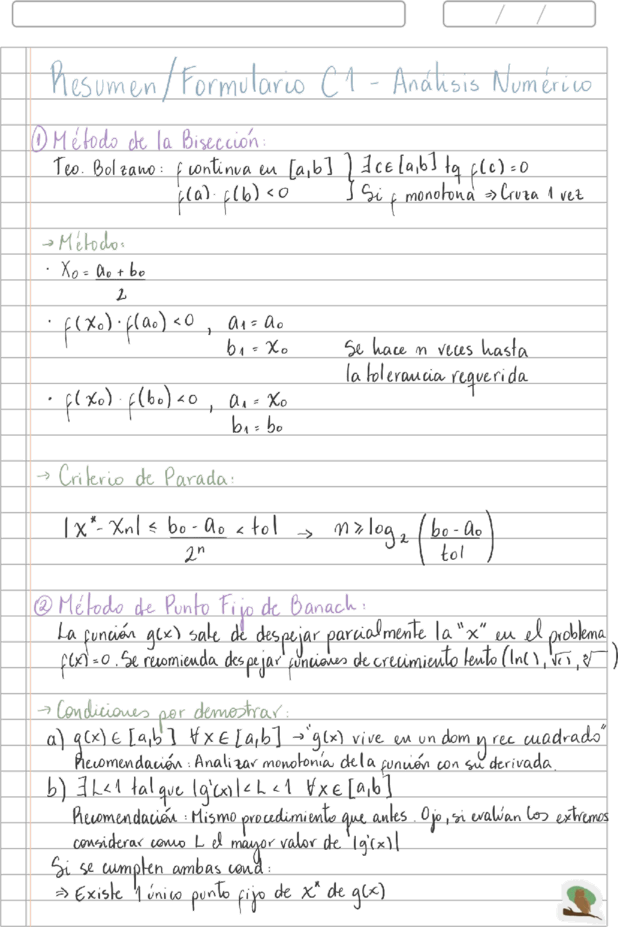 Resumen/Formulario C1 - Análisis Numérico
① Método de la Bisección:
Teo. Bolzano: f continua en [a,b] } ∃ c ∈ [a,b] tq f(c)=0
f(a)·f(b)<0 } Si f monotona ⇒ Cruza 1 vez
→ Método:
· x₀ = (a₀ + b₀)/2
· f(x₀)·f(a₀)<0, a₁ = a₀
b₁ = x₀ Se hace n veces hasta
la tolerancia requerida
· f(x₀)·f(b₀)<0, a₁ = x₀
b₁ = b₀
→ Criterio de Parada:
|x* - xₙ| ≤ (b₀ - a₀)/2ⁿ < tol → n ≥ log₂ ((b₀ - a₀)/tol)
② Método de Punto Fijo de Banach:
La función g(x) sale de despejar parcialmente la "x" en el problema
f(x)=0. Se recomienda despejar funciones de crecimiento lento (ln( ), √( ), ∛ )
→ Condiciones por demostrar:
a) g(x) ∈ [a,b] ∀ x ∈ [a,b] → "g(x) vive en un dom y rec cuadrado"
Recomendación: Analizar monotonía de la función con su derivada.
b) ∃ L<1 tal que |g'(x)| < L < 1 ∀ x ∈ [a,b]
Recomendación: Mismo procedimiento que antes. Ojo, si evalúan los extremos
considerar como L el mayor valor de |g'(x)|
Si se cumplen ambas cond:
⇒ Existe 1 único punto fijo de x* de g(x)